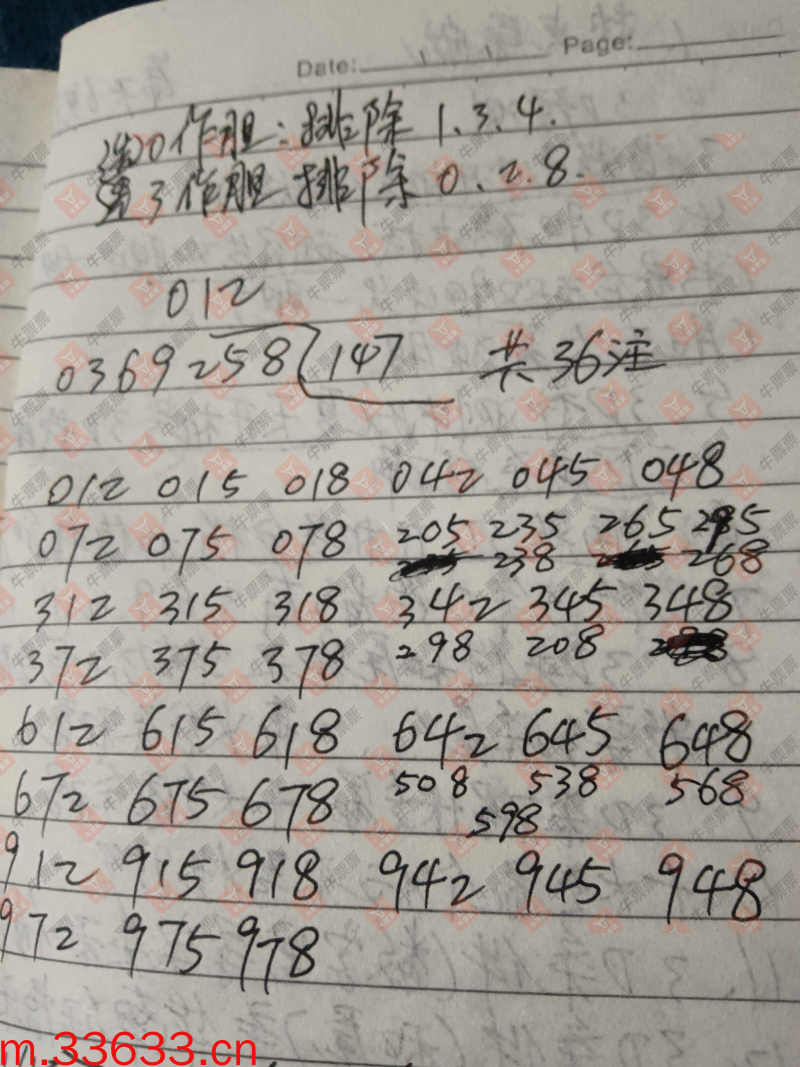 Date: Page:
选0作胆:排除1.3.4.
选3作胆 排除0.2.8.
012
0369 258 147 共36注
012 015 018 042 045 048
072 075 078 205 235 265 295
238 268
312 315 318 342 345 348
372 375 378 298 208
612 615 618 642 645 648
672 675 678 508 538 568
598
912 915 918 942 945 948
972 975 978
m.33633.cn